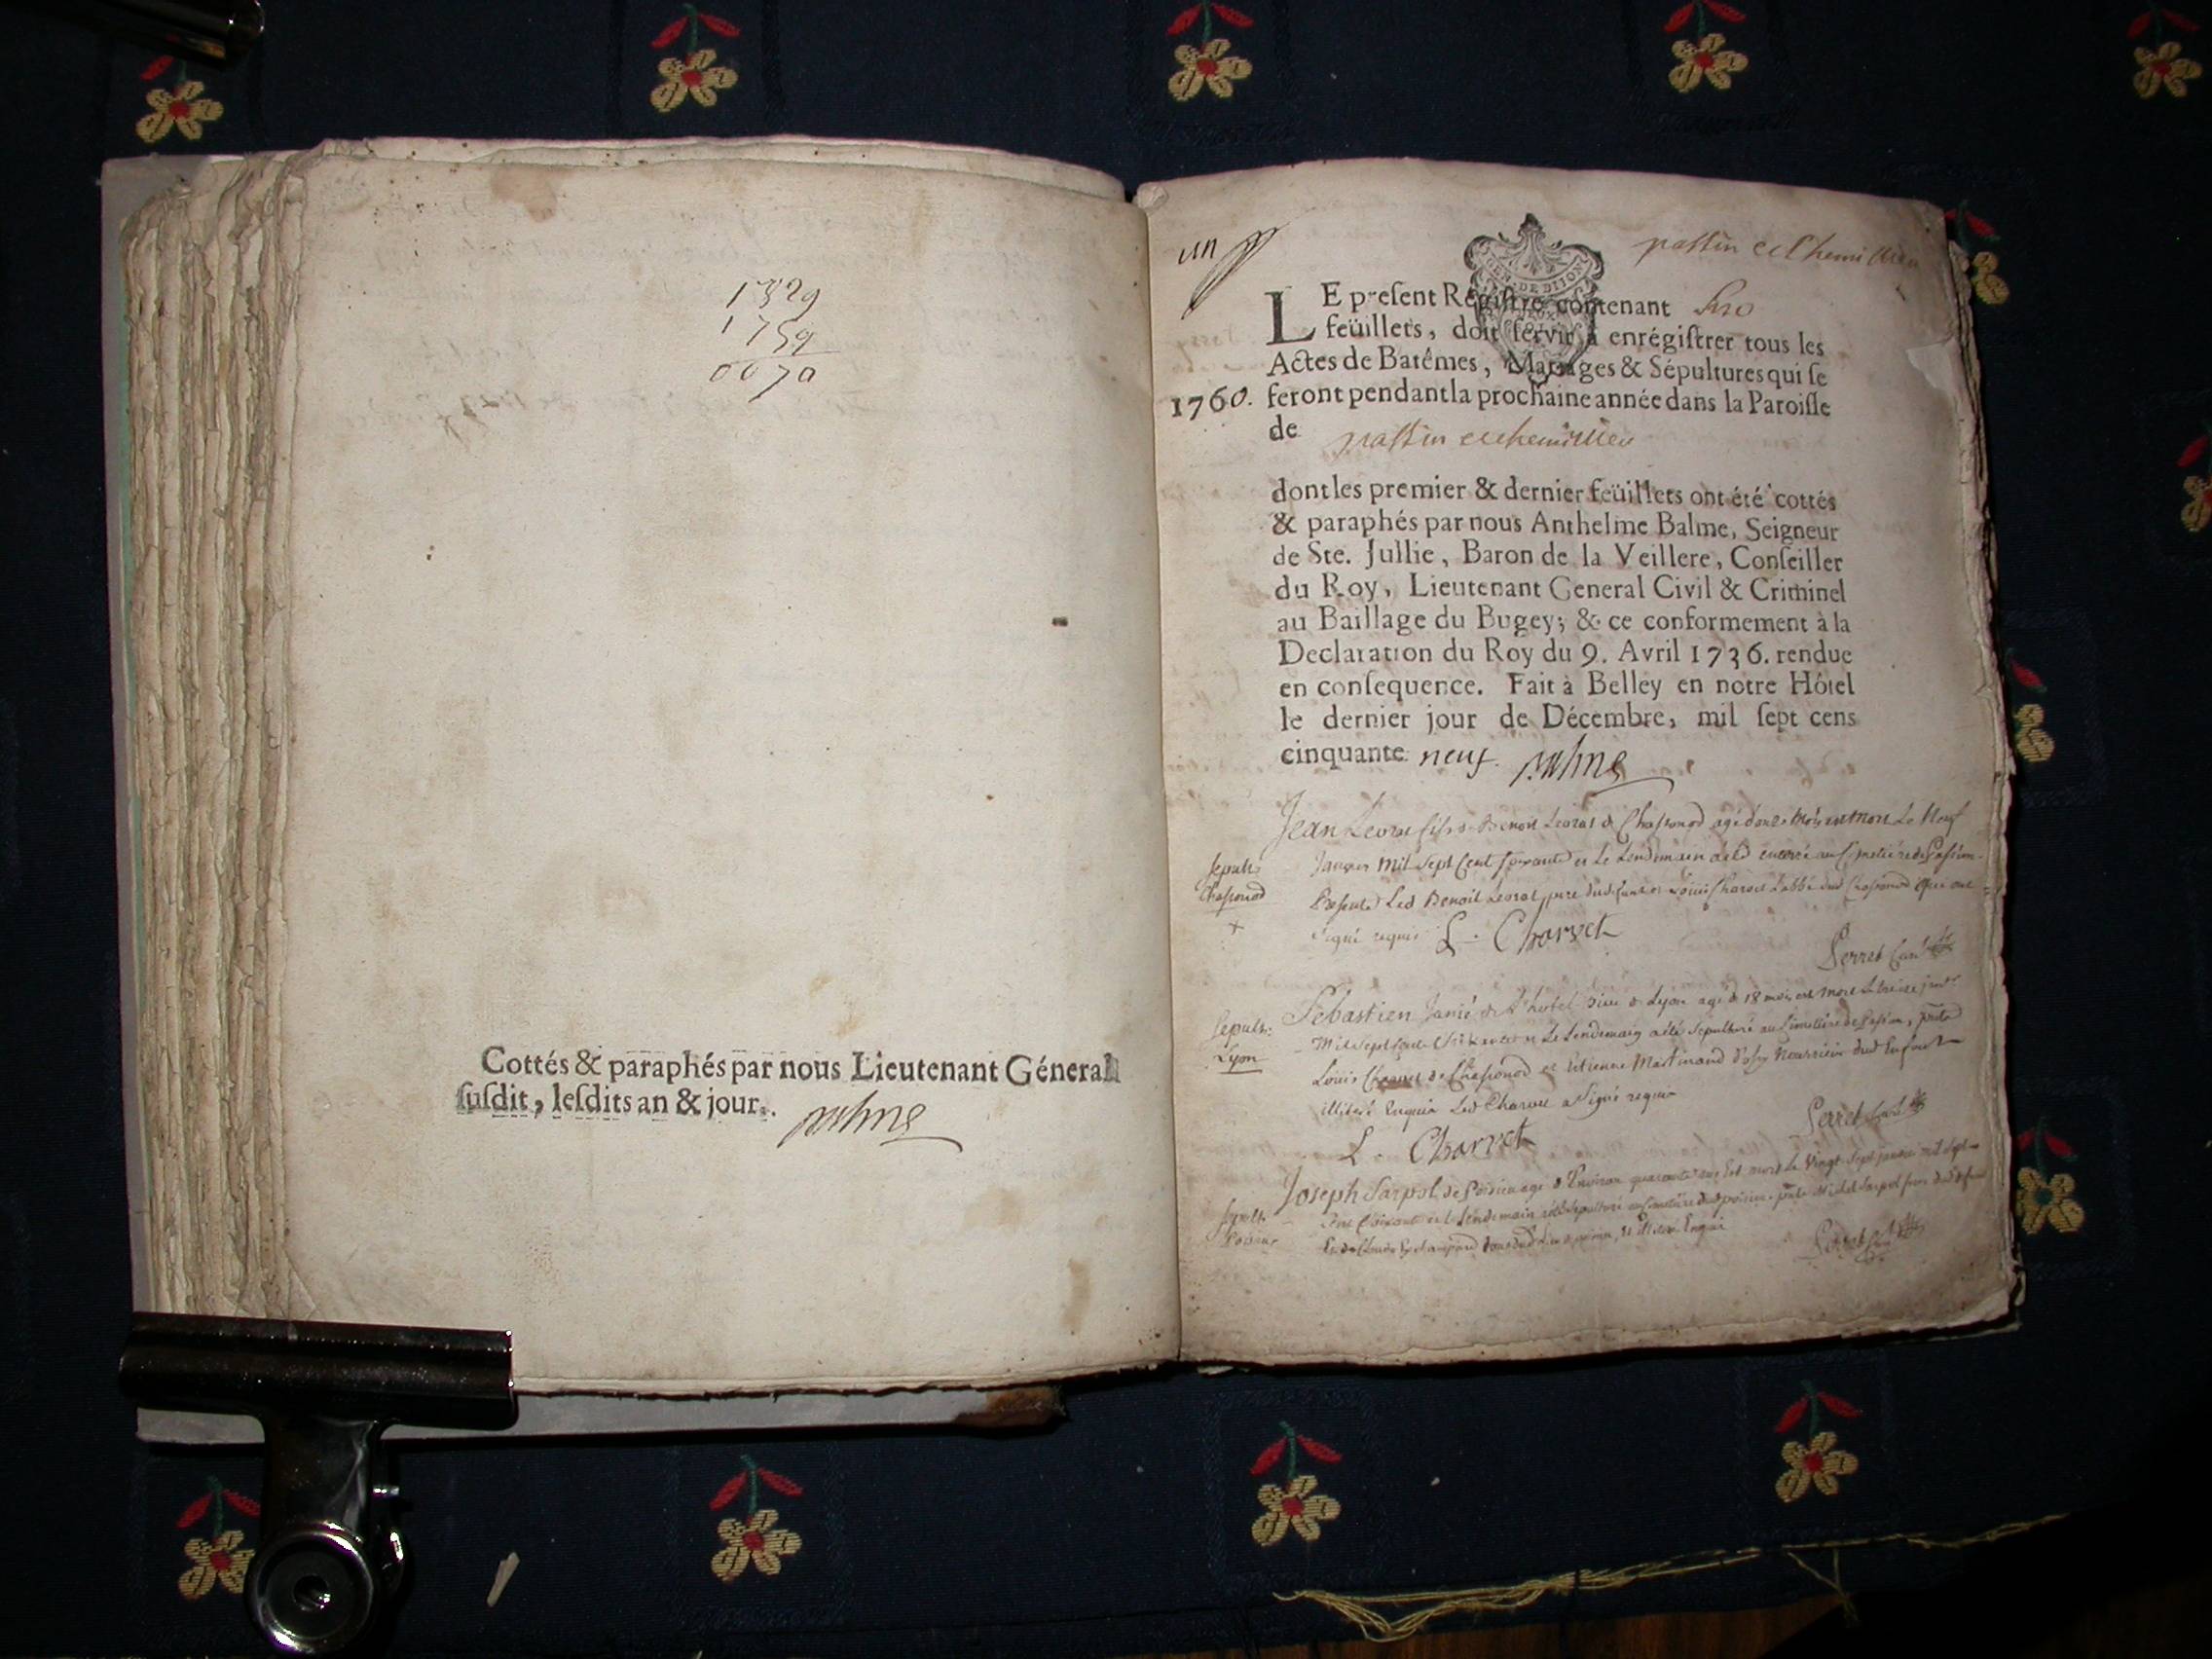 1829
1759
0070
Cottés & paraphés par nous Lieutenant Géneral
ſuſdit, leſdits an & jour.
Balme
un
passin et Chemillieu
GEN. DE DIJON
LE preſent Regiſtre contenant
feüillets, doit ſervir à enrégiſtrer tous les
Actes de Batêmes, Mariages & Sépultures qui ſe
1760. feront pendant la prochaine année dans la Paroiſſe
de passin et chemillieu
dont les premier & dernier feüillets ont été cottés
& paraphés par nous Anthelme Balme, Seigneur
de Ste. Jullie, Baron de la Veillere, Conſeiller
du Roy, Lieutenant General Civil & Criminel
au Baillage du Bugey; & ce conformement à la
Declaration du Roy du 9. Avril 1736. rendue
en conſequence. Fait à Belley en notre Hôtel
le dernier jour de Décembre, mil ſept cens
cinquante neuf. Balme
Jean Leorat fils d Benoit Leorat d Chassonod agé d'onze mois est mort Le Neuf
sepult: Janvier Mil Sept Cent soixante et Le Lendemain a eté enterré au Cimetiére de Passin
Chassonod Led Benoit Leorat pere Louis Charvet Chassonod qui ont
Signé requis L. Charvet
Perret Curé
Sebastien de L'hotel Dieu d Lyon agé d 18 mois est mort Le treize
Sepult: Mil sept Cent et Le Lendemain a été sepulturé au Cimetiére de Passin,
Lyon Louis Charvet de Chassonod et Etienne Martinand Nourricier dud Enfant
illiteré Enquis Led Charvet a Signé requis
Perret Curé
L. Charvet
Joseph Sarpol de d'Environ quarante ans Est mort Le Vingt Sept janvier mil sept
Sepult: Cent soixante et Lendemain a été sepulturé au Cimetiére Michel Sarpol
Enquis
Perret Curé